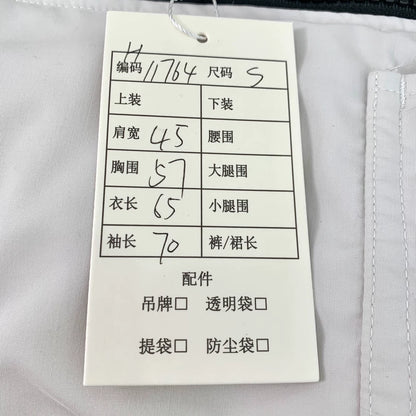 编码 H11764 尺码 S
上装 下装
肩宽 45 腰围
胸围 57 大腿围
衣长 65 小腿围
袖长 70 裤/裙长
配件
吊牌□ 透明袋□
提袋□ 防尘袋□